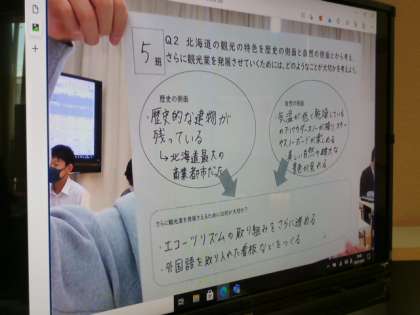 5班
Q2 北海道の観光の特色を歴史の側面と自然の側面とから考え、
さらに観光業を発展させていくためには、どのようなことが大切かを考えよう。
歴史の側面
・歴史的な建物が
残っている
↳北海道最大の
商業都市だった
自然の側面
気温が低く乾燥している
のでパウダースノーが降り、スキー
やスノーボードが楽しめる
美しい自然や雄大な
景色が見れる
さらに観光業を発展させるためには何が大切か?
・エコーツリズムの取り組みをさらに進める
・外国語を取り入れた看板などをつくる